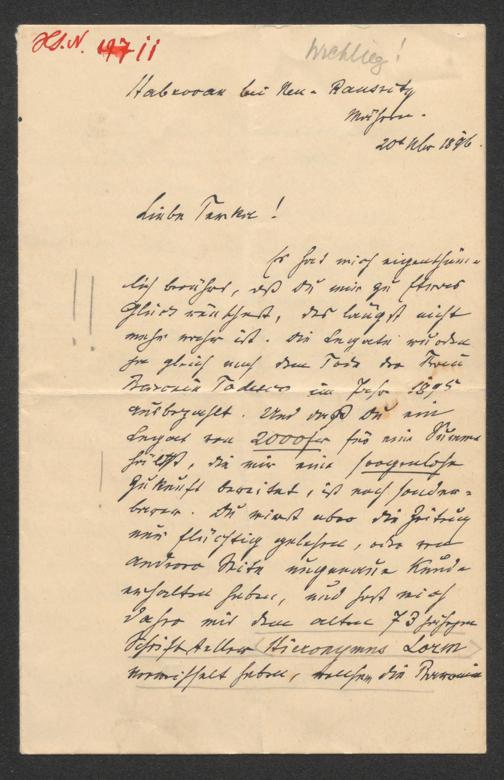 H.I.N. 19711
Wichtig!
Habrovan bei Neu-Raussnitz
Mähren.
20t Nov 1896.
Liebe Tante!
Es hat mich eigenthüm-
lich berührt, daß Du mir zu Etwas
Glück wünschest, das längst nicht
mehr wahr ist. Die Legate wurden
ja gleich nach dem Tode der Frau
Baronin Todesco im Jahr 1895
ausbezahlt. Und daß Du ein
Legat von 2000 für eine Summe
hältst, die mir eine sorgenlose
Zukunft bereitet, ist noch sonder-
barer. Du wirst aber die Zeitung
nur flüchtig gelesen, oder von
anderer Seite ungenaue Kunde
erhalten haben, und hast mich
daher mit dem alten 73 jährigen
Schriftsteller Hieronymus Lorm
verwechselt haben, welchem die Baronin